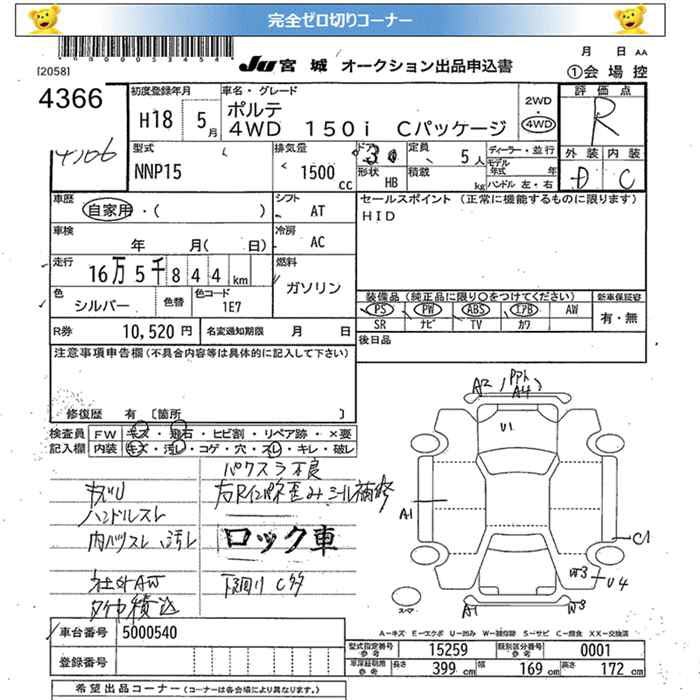 完全ゼロ切りコーナー
月 日 AA
[2058]
Ju 宮城 オークション出品申込書
①会場控
4366
初度登録年月
H18 5月
車名・グレード
ポルテ
4WD 150i Cパッケージ
2WD
4WD
評価点
R
4106
型式
NNP15
排気量
1500 cc
ドア
3
形状
HB
定員
5人
積載
kg
ディーラー・並行
モデル年式 年
ハンドル 左・右
外装 内装
D C
車歴
自家用・( )
シフト
AT
セールスポイント (正常に機能するものに限ります)
HID
車検
年 月( 日)
冷房
AC
走行
16万5千844km
燃料
ガソリン
色
シルバー
色替
色コード
1E7
装備品(純正品に限り○をつけてください)
新車保証書
PS PW ABS エアB AW
SR ナビ TV カワ
有・無
R券
10,520円
名変通知期限 月 日
後日品
注意事項申告欄(不具合内容等は具体的に記入して下さい)
修復歴 有 [箇所 ]
検査員記入欄
FW キズ・飛石・ヒビ割・リペア跡・×要
内装 キズ・汚レ・コゲ・穴・スレ・キレ・破レ
パワスラ不良
キズU
ハンドルスレ
内ハリスレ 汚レ
ロック車
社外AW
下廻り C多
タイヤ積込
A2
A4
U1
A1
C1
W3
U4
A1
W3
スマ
A-キズ E-エクボ U-凹み W-補修跡 S-サビ C-腐食 XX-交換済
車台番号
5000540
登録番号
型式指定番号 参考
15259
類別区分番号 参考
0001
車庫証明用 参考
長さ 399 cm
幅 169 cm
高さ 172 cm
希望出品コーナー(コーナーは各会場により異なります。)